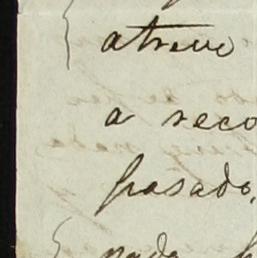 atreve
a reco
pasado,
nada